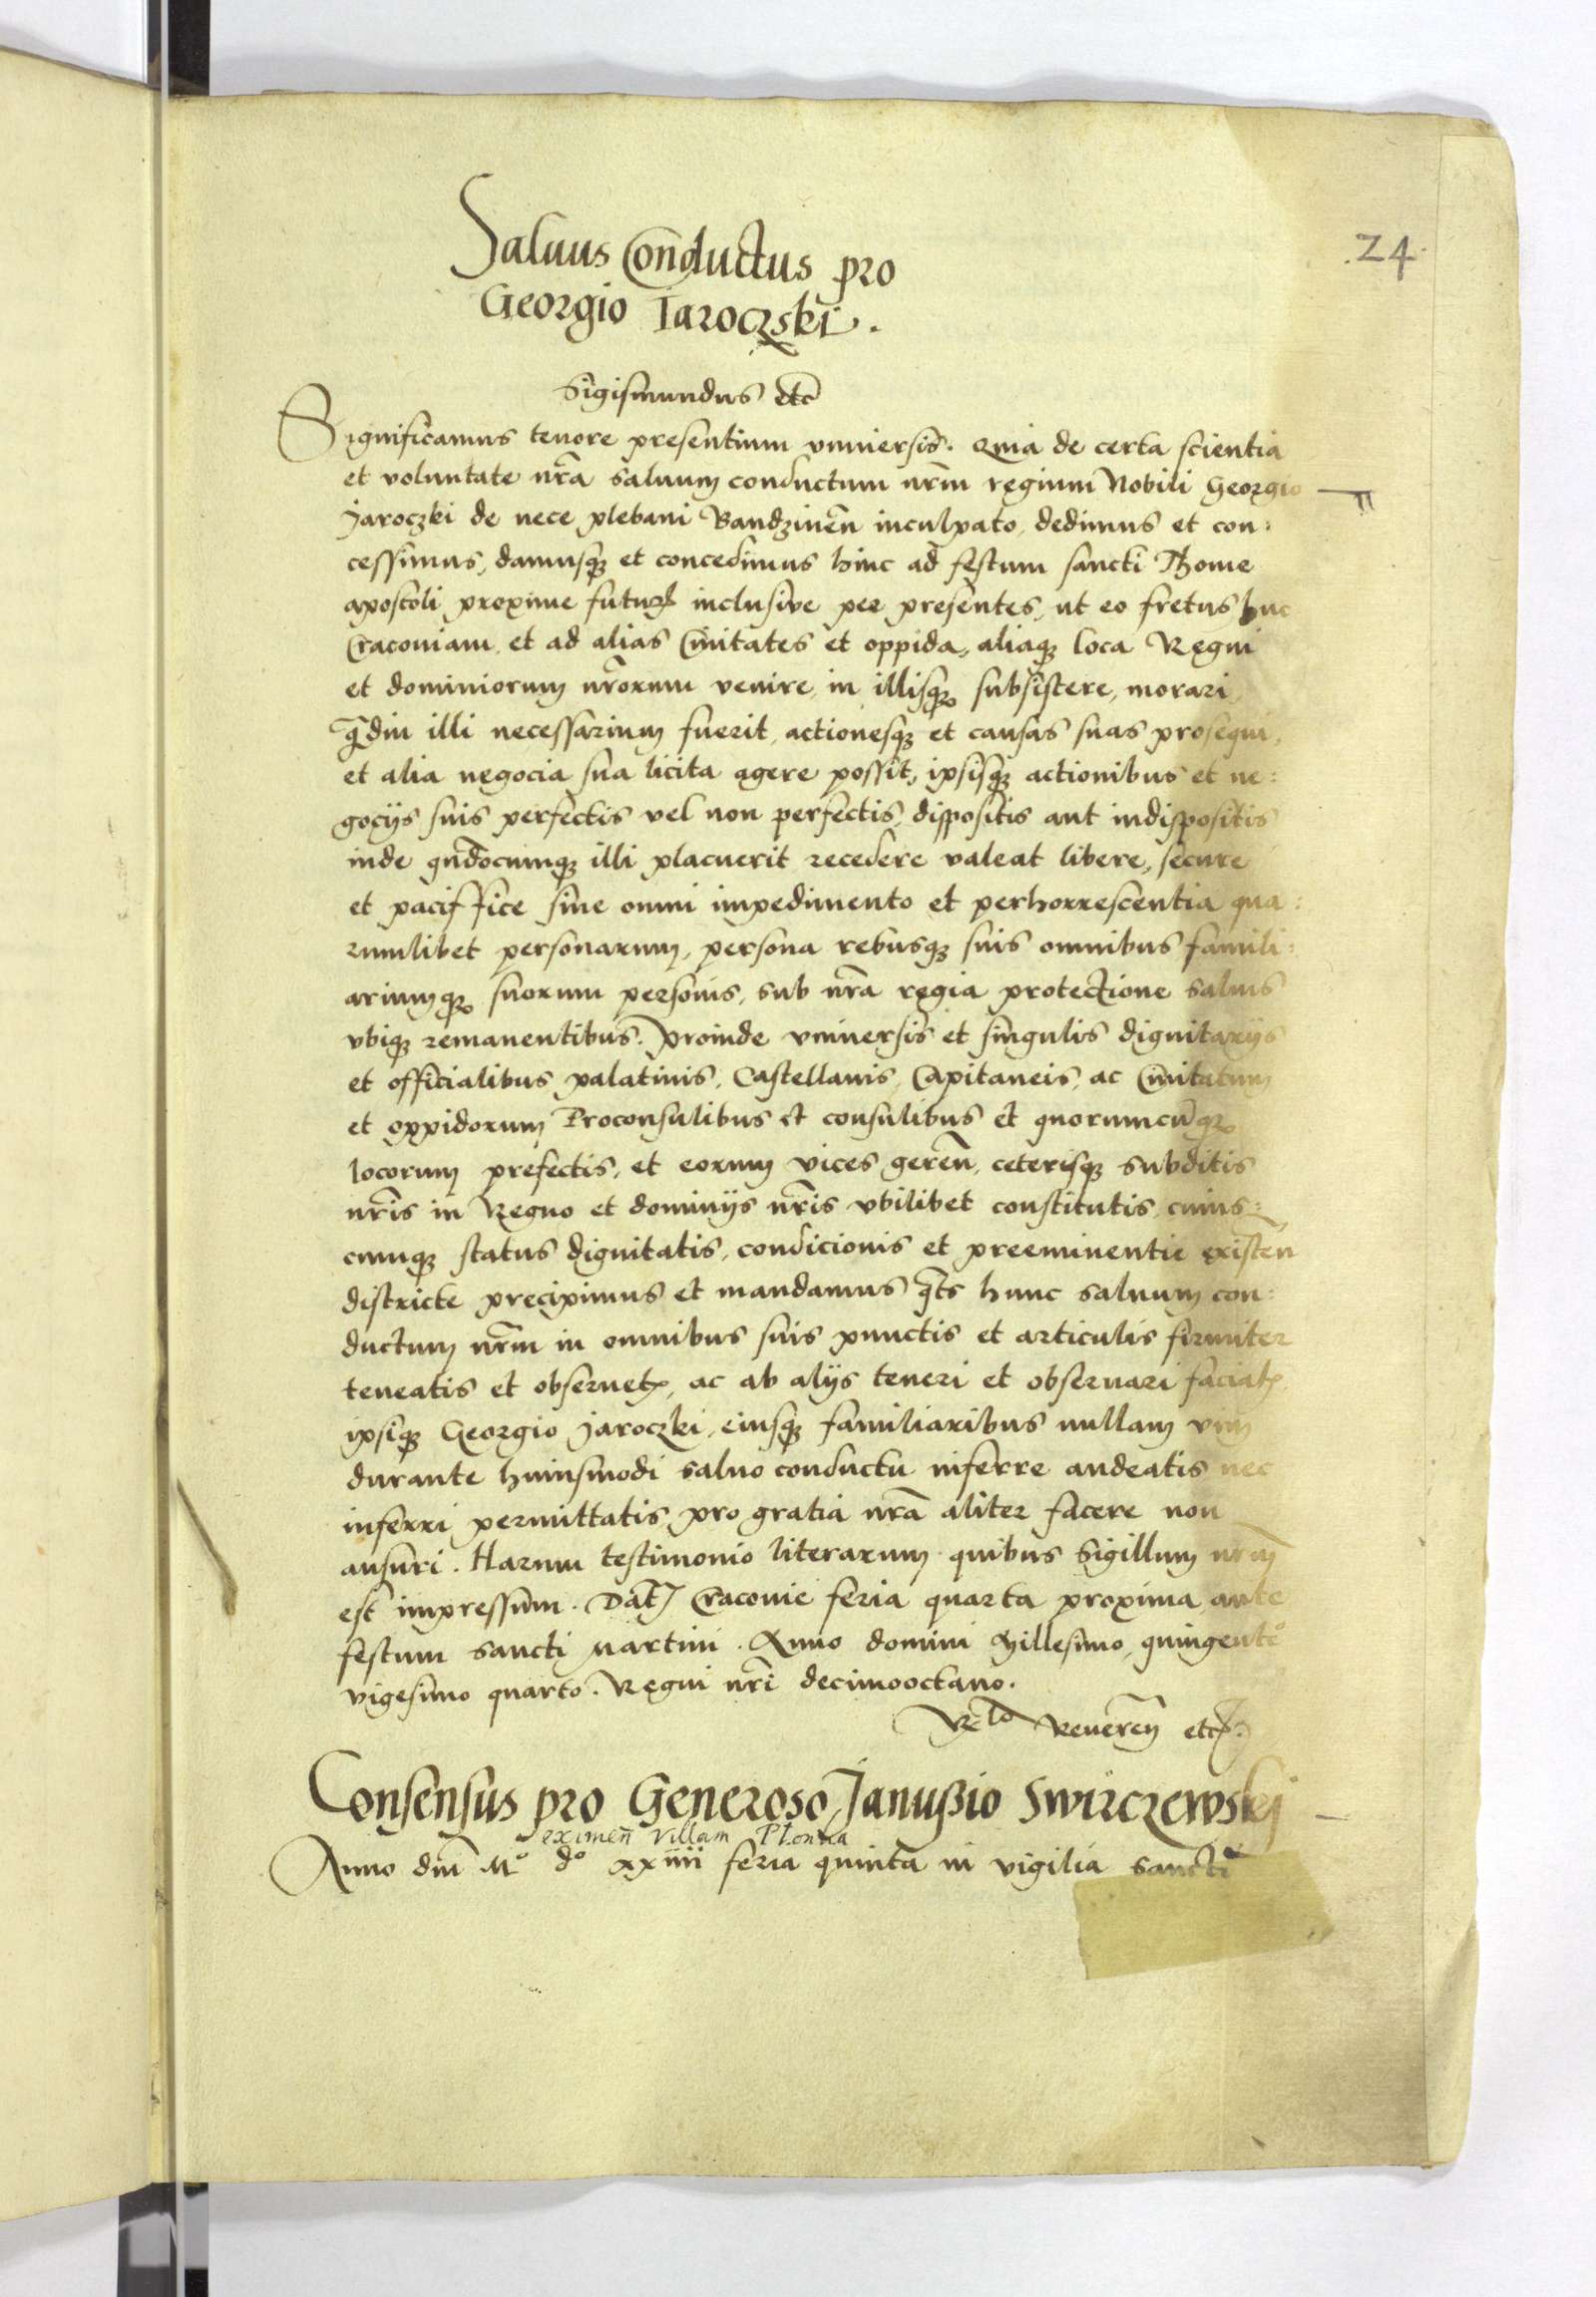 24
Saluus Conductus pro
Georgio Iaroczski.
Sigismundus etc̃
Significamus tenore presentium vniuersis. Quia de certa scientia
et voluntate nr̃a saluum conductum nr̃m regium Nobili Georgio
Jaroczki de nece plebani Bandzineñ inculpato, dedimus et con:
cessimus, damusqꝫ et concedimus hinc ad festum sancti Thome
apostoli proxime futurꝭ inclusive per presentes, ut eo fretus huc
Cracouiam et ad alias Ciuitates et oppida, aliaqꝫ loca Regni
et dominiorum nr̃orum venire, in illisqꝫ subsistere, morari,
q̃diu illi necessarium fuerit, actionesqꝫ et causas suas prosequi,
et alia negocia sua licita agere possit, ipsisqꝫ actionibus et ne:
gocijs suis perfectis vel non perfectis, dispositis aut indispositis
inde qñdocumqꝫ illi placuerit recedere valeat libere, secure
et paciffice sine omni impedimento et perhorrescentia qua:
rumlibet personarum, persona rebusqꝫ suis omnibus famili:
ariumqꝫ suorum personis, sub nr̃a regia protectione saluis
vbiqꝫ remanentibus. Proinde vniuersis et singulis dignitarijs
et officialibus palatinis, Castellanis, Capitaneis, ac Ciuitatum
et oppidorum Proconsulibus et consulibus et quorumcũqꝫ
locorum prefectis, et eorum vices gereñ, ceterisqꝫ subditis
nr̃is in Regno et dominijs nr̃is vbilibet constitutis, cuius:
cumqꝫ status dignitatis, condicionis et preeminentie existeñ
districte precipimus et mandamus q̃ts hunc saluum con:
ductum nr̃m in omnibus suis punctis et articulis firmiter
teneatis et obseruetꝭ, ac ab alijs teneri et obseruari faciatꝭ
ipsiqꝫ Georgio Jaroczki, eiusqꝫ familiaribus nullam vim
durante huiusmodi saluo conductu inferre audeatis nec
inferri permittatis, pro gratia nr̃a aliter facere non
ausuri. Harum testimonio literarum quibus Sigillum nr̃m
est impressum. Dat̃ Cracouie feria quarta proxima ante
festum sancti Martini. Anno domini Millesimo, quingentẽo
vigesimo quarto. Regni nr̃i decimooctauo.
Relo Reuereñ etc̃
Consensus pro Generoso Janussio Swirczewski
eximeñ villam Plonna
Anno dni Mº dº xxiiii feria quinta in vigilia sancti